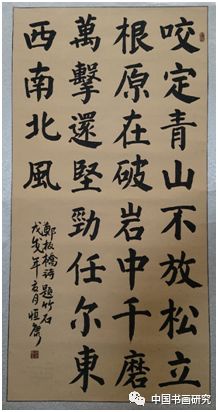 咬定青山不放松立
根原在破岩中千磨
萬擊還堅勁任尔東
西南北風
鄭板橋詩題竹石
戊戌年夏月恒
中国书画研究